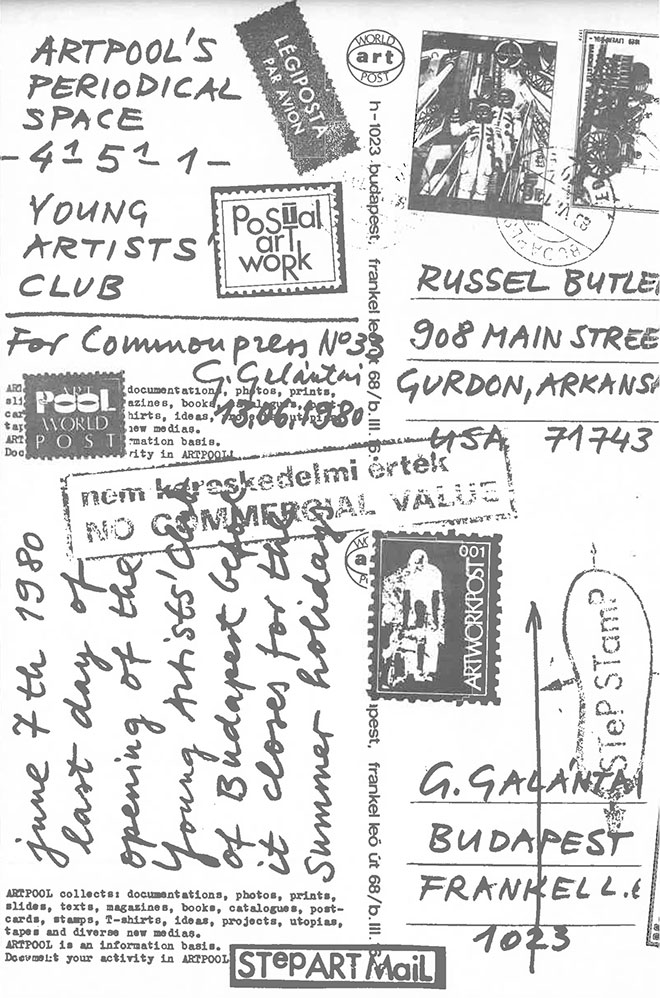 ARTPOOL'S
PERIODICAL
SPACE
- 4 1 5 1 1 -
YOUNG
ARTISTS'
CLUB
LÉGIPOSTA
PAR AVION
POSTAL
art
WORK
WORLD
art
POST
h-1023. budapest, frankel leó út 68/b. III.
RUSSEL BUTLE
908 MAIN STREE
GURDON, ARKANSA
USA 71743
For Commonpress No 33
G. Galántai
13.06.1980
ART
POOL
WORLD
POST
documentations, photos, prints,
azines, books, catalogues,
hirts, ideas, projects, utopias,
new medias.
rmation basis.
ivity in ARTPOOL!
nem kereskedelmi érték
NO COMMERCIAL VALUE
june 7th 1980
last day of
opening of the
Young Artists' Club
of Budapest before
it closes for the
Summer holiday
001
ARTWORKPOST
STEP STAMP
pest, frankel leó út 68/b. III.
G. GALÁNTAI
BUDAPEST
FRANKEL L.
1023
ARTPOOL collects: documentations, photos, prints,
slides, texts, magazines, books, catalogues, post-
cards, stamps, T-shirts, ideas, projects, utopias,
tapes and diverse new medias.
ARTPOOL is an information basis.
Document your activity in ARTPOOL
STEPART MAIL